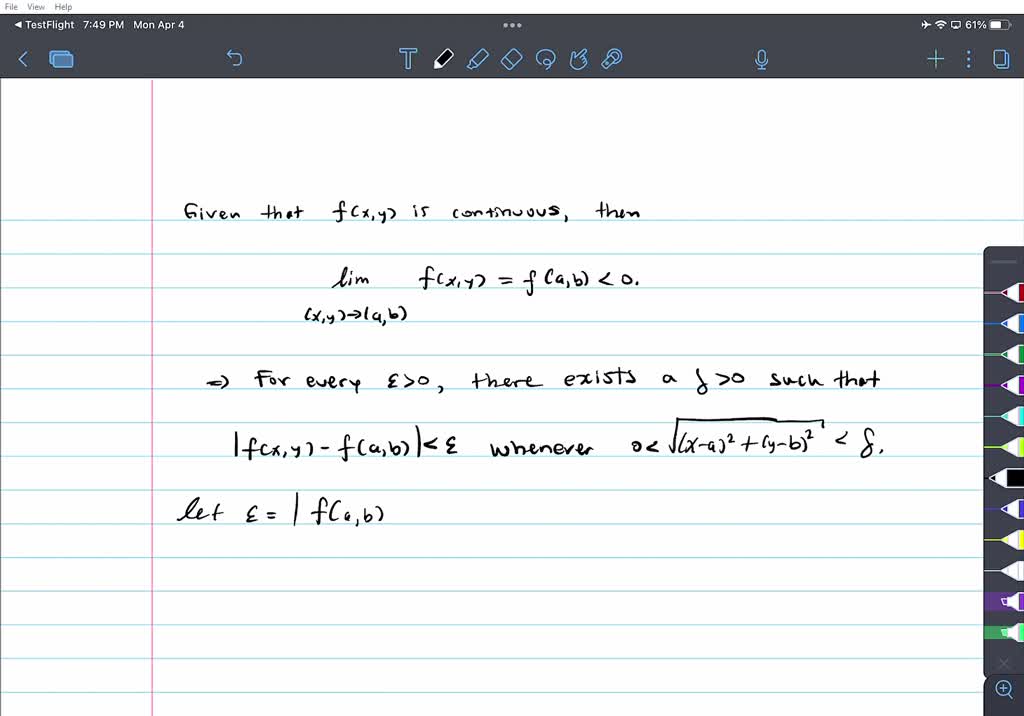 File View Help
TestFlight 7:49 PM Mon Apr 4 61%
Given that f(x,y) is continuous, then
lim f(x,y) = f(a,b) < 0.
(x,y)→(a,b)
⇒ For every ε>0, there exists a δ>0 such that
|f(x,y) - f(a,b)| < ε whenever 0 < √(x-a)² + (y-b)² < δ.
let ε = | f(a,b)